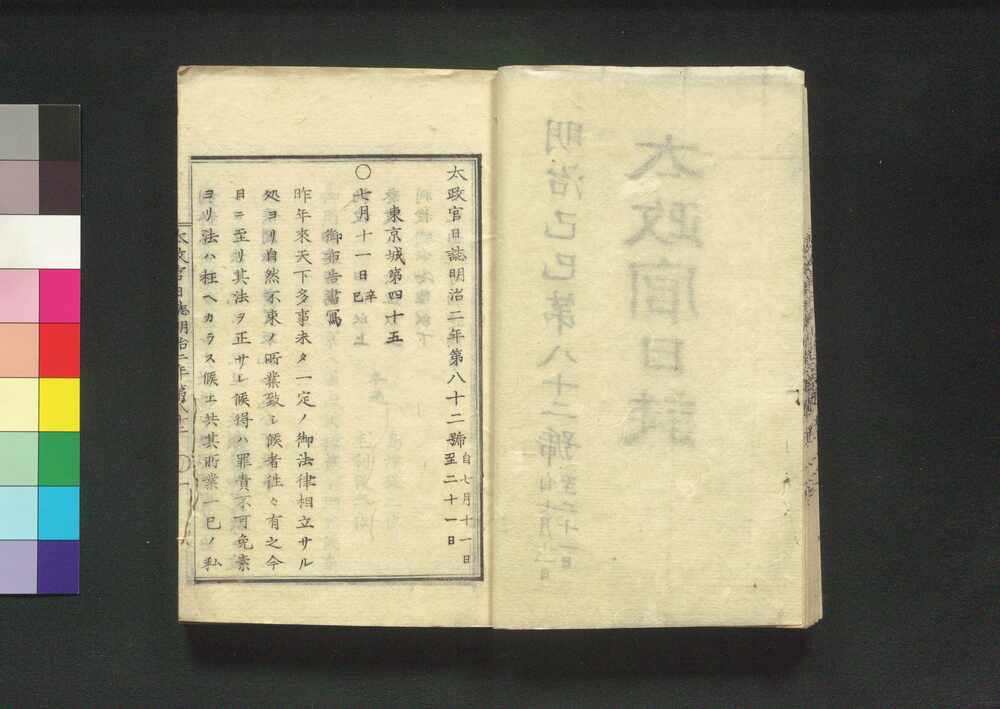 太政官日誌明治二年第八十二號 自七月十一日
至二十一日
東京城第四十五
〇七月十一日 辛巳
御布告書寫
昨年來天下多事未タ一定ノ御法律相立サル
処ヨリ自然不束ノ所業致シ候者徃々有之今
日ニ至リ其法ヲ正サレ候得ハ罪責不可免素
ヨリ法ハ枉ヘカラス候エ共其所業一已ノ私
太政官日誌明治二年第八十二 〇一